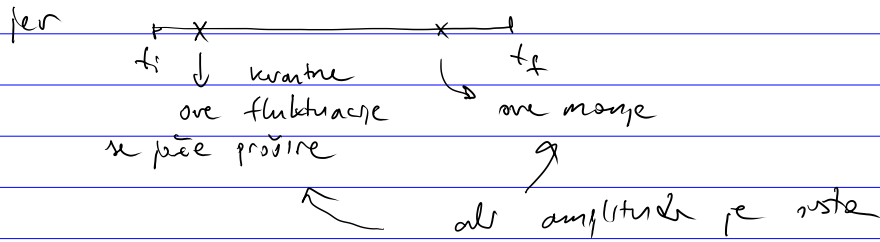 jer
ti tf
kvantne
ove fluktuacije ove manje
se jače prošire
ali amplituda je ista